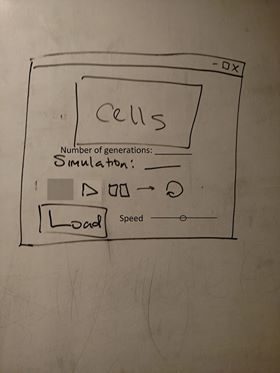 cells
Number of generations:
Simulation:
Load
Speed